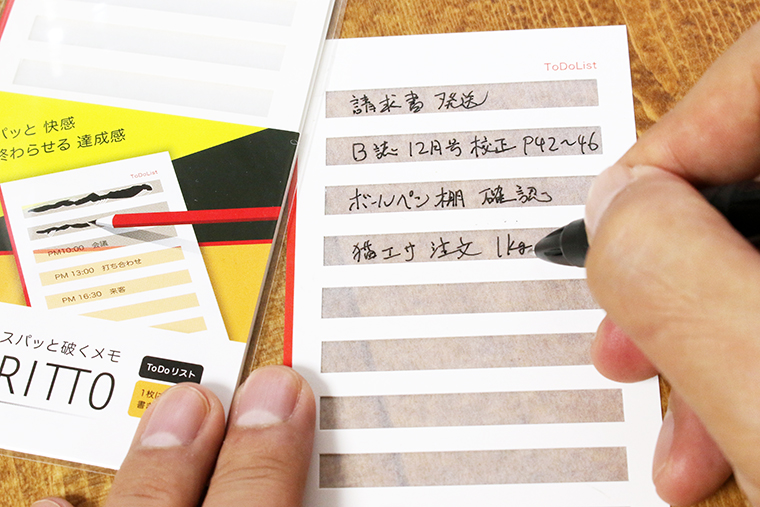 パッと 快感
終わらせる 達成感
ToDoList
PM10:00 会議
PM 13:00 打ち合わせ
PM 16:30 来客
スパッと破くメモ
RITTO
ToDoリスト
1枚に
書
ToDoList
請求書 発送
B誌 12月号 校正 P42~46
ボールペン棚 確認
猫エサ 注文 1kg